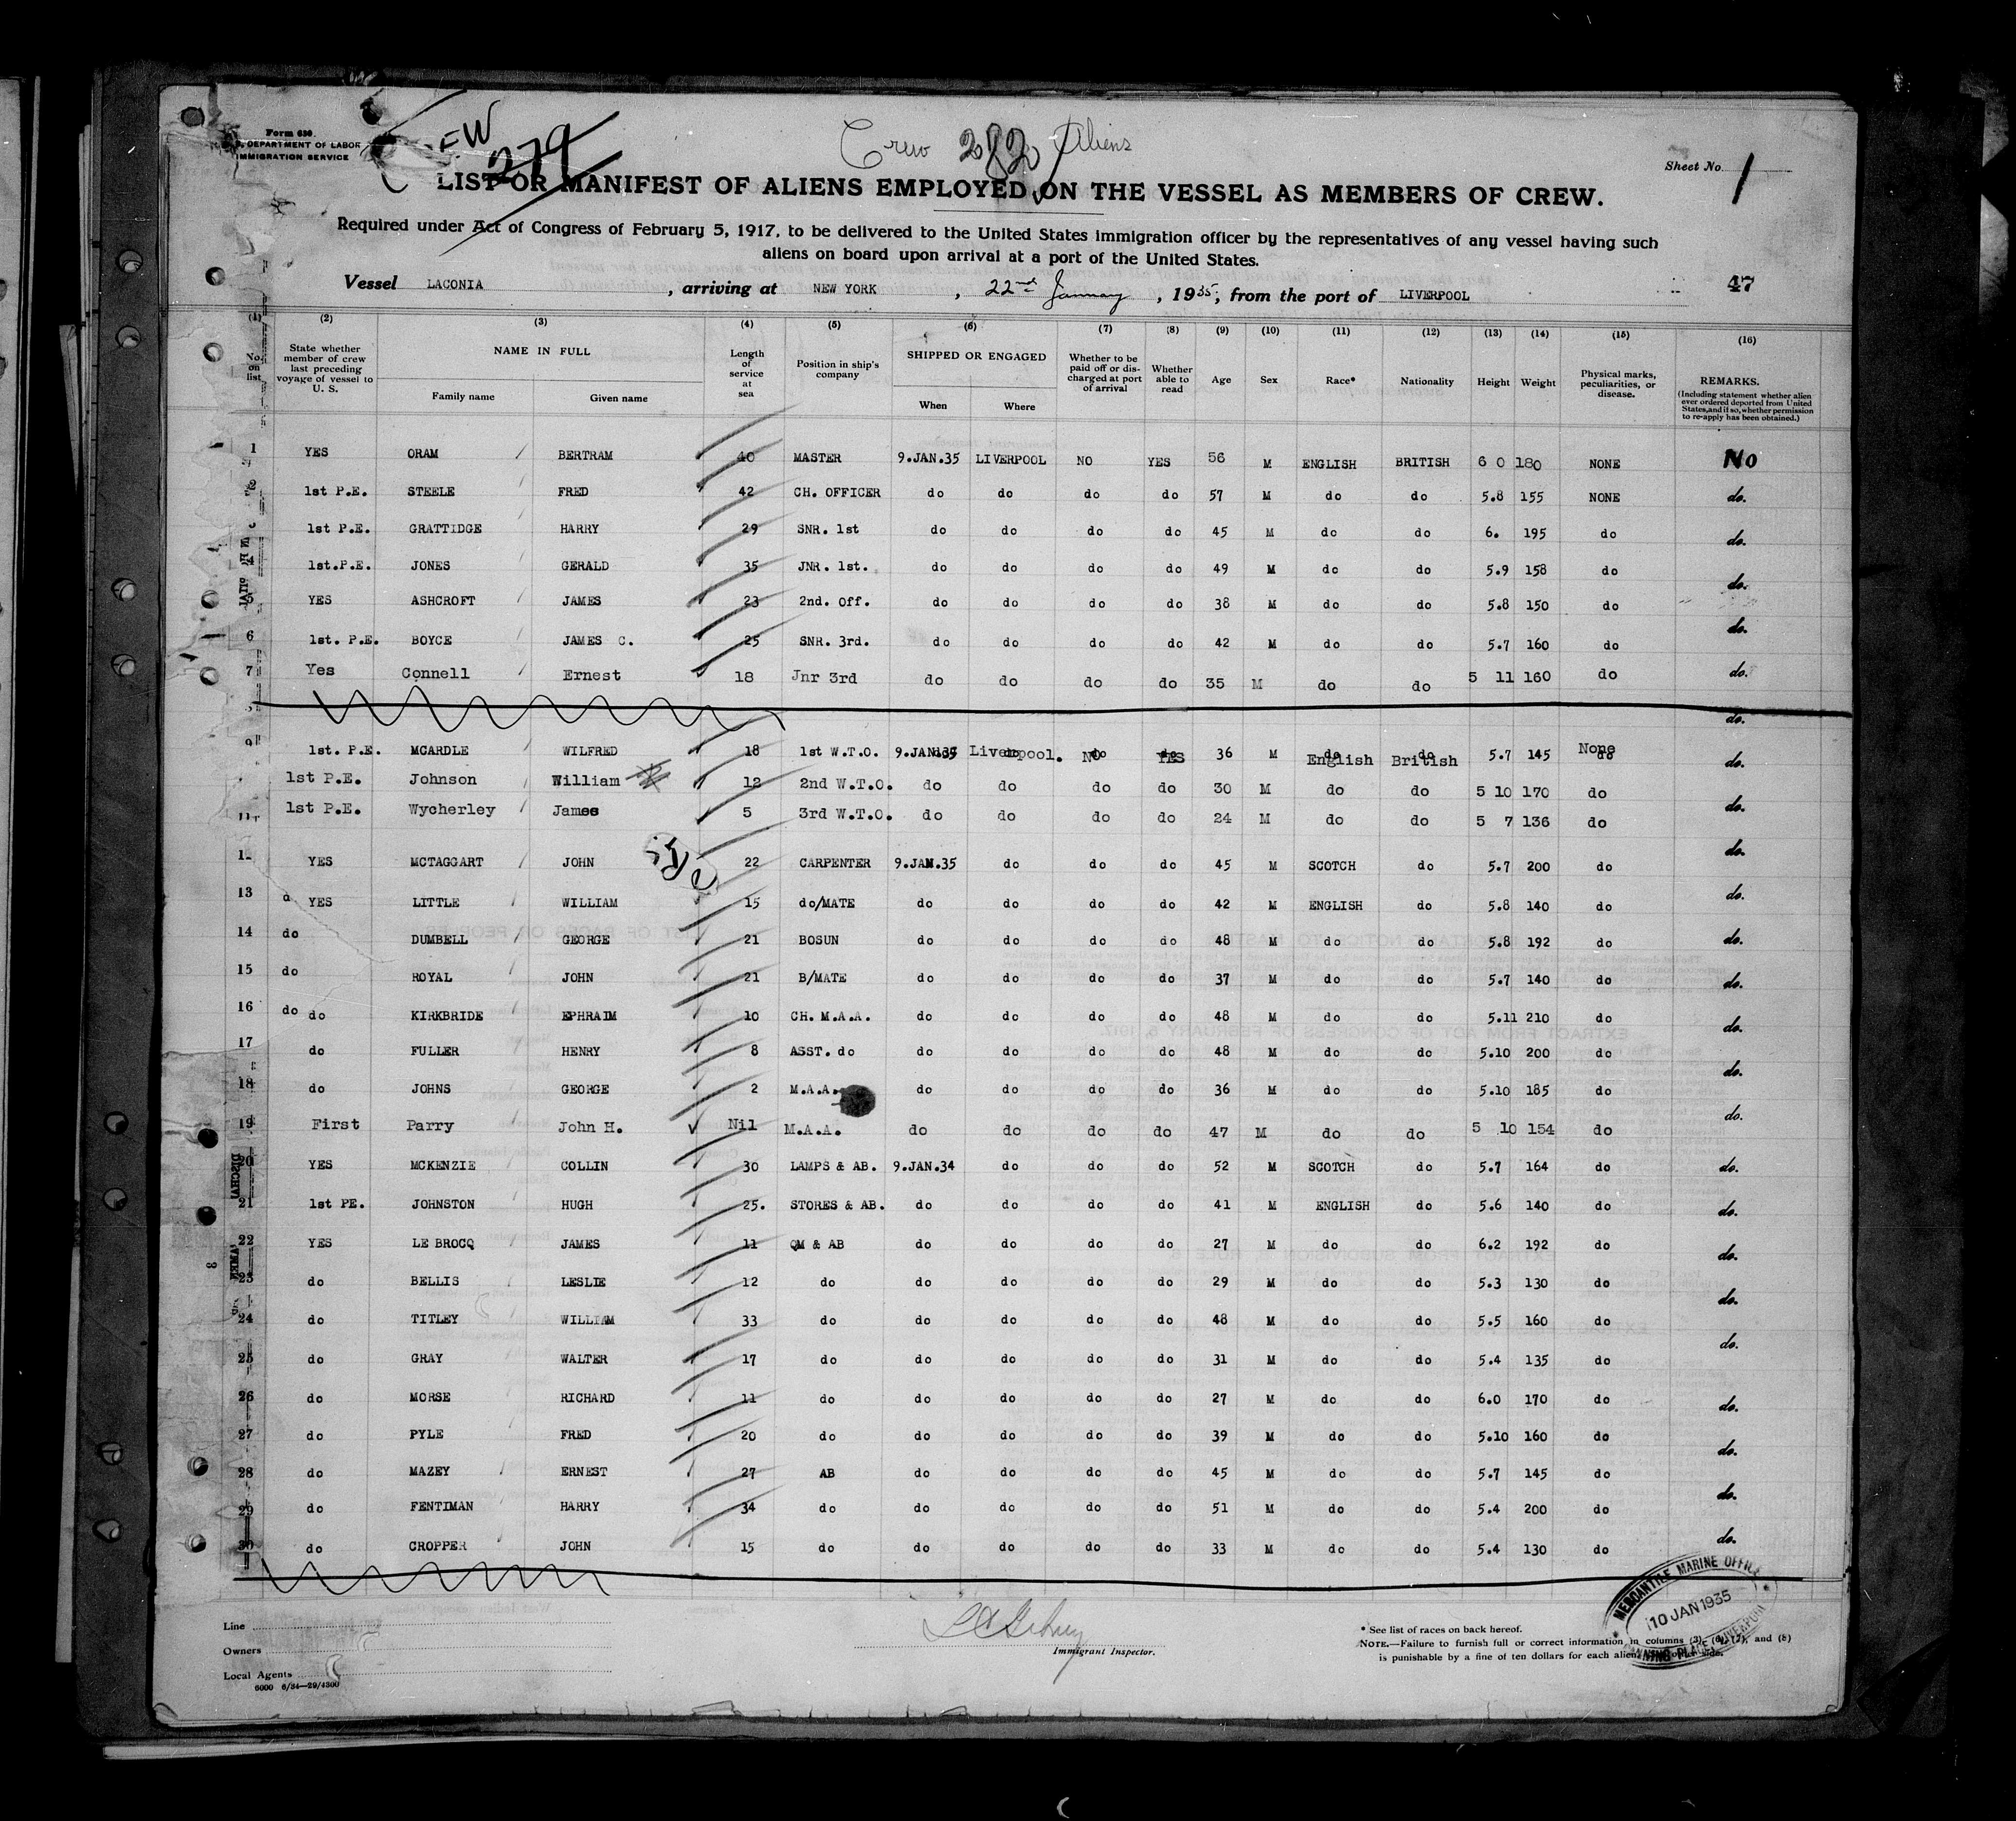 Form 630
DEPARTMENT OF LABOR
IMMIGRATION SERVICE
279
Crew 282 Aliens
Sheet No. 1
LIST OR MANIFEST OF ALIENS EMPLOYED ON THE VESSEL AS MEMBERS OF CREW.
Required under Act of Congress of February 5, 1917, to be delivered to the United States immigration officer by the representatives of any vessel having such
aliens on board upon arrival at a port of the United States.
Vessel LACONIA , arriving at NEW YORK , 22nd January , 1935, from the port of LIVERPOOL 47
(1) (2) (3) (4) (5) (6) (7) (8) (9) (10) (11) (12) (13) (14) (15) (16)
No. on list
State whether member of crew last preceding voyage of vessel to U. S.
NAME IN FULL
Family name
Given name
Length of service at sea
Position in ship's company
SHIPPED OR ENGAGED
When
Where
Whether to be paid off or discharged at port of arrival
Whether able to read
Age
Sex
Race*
Nationality
Height
Weight
Physical marks, peculiarities, or disease.
REMARKS.
(Including statement whether alien ever ordered deported from United States, and if so, whether permission to re-apply has been obtained.)
1 YES ORAM BERTRAM 40 MASTER 9.JAN.35 LIVERPOOL NO YES 56 M ENGLISH BRITISH 6 0 180 NONE No
2 1st P.E. STEELE FRED 42 CH. OFFICER do do do do 57 M do do 5.8 155 NONE do.
1st P.E. GRATTIDGE HARRY 29 SNR. 1st do do do do 45 M do do 6. 195 do do.
4 1st.P.E. JONES GERALD 35 JNR. 1st. do do do do 49 M do do 5.9 158 do do.
5 YES ASHCROFT JAMES 23 2nd. Off. do do do do 38 M do do 5.8 150 do do.
6 1st. P.E. BOYCE JAMES C. 25 SNR. 3rd. do do do do 42 M do do 5.7 160 do do.
7 Yes Connell Ernest 18 Jnr 3rd do do do do 35 M do do 5 11 160 do do.
do.
9 1st. P.E. MCARDLE WILFRED 18 1st W.T.O. 9.JAN.35 Liverpool. NO YES 36 M English British 5.7 145 None do.
1st P.E. Johnson William 12 2nd W.T.O. do do do do 30 M do do 5 10 170 do
11 1st P.E. Wycherley James 5 3rd W.T.O. do do do do 24 M do do 5 7 136 do do.
1 YES MCTAGGART JOHN 22 CARPENTER 9.JAN.35 do do do 45 M SCOTCH do 5.7 200 do do.
13 YES LITTLE WILLIAM 15 do/MATE do do do do 42 M ENGLISH do 5.8 140 do do.
14 do DUMBELL GEORGE 21 BOSUN do do do do 48 M do do 5.8 192 do do.
15 do ROYAL JOHN 21 B/MATE do do do do 37 M do do 5.7 140 do do.
16 do do KIRKBRIDE EPHRAIM 10 CH. M.A.A. do do do do 48 M do do 5.11 210 do do.
17 do FULLER HENRY 8 ASST. do do do do do 48 M do do 5.10 200 do do.
18 do JOHNS GEORGE 2 M.A.A. do do do do 36 M do do 5.10 185 do do.
19 First Parry John H. Nil M.A.A. do do do do 47 M do do 5 10 154 do
20 YES MCKENZIE COLLIN 30 LAMPS & AB. 9.JAN.34 do do do 52 M SCOTCH do 5.7 164 do do.
21 1st PE. JOHNSTON HUGH 25. STORES & AB. do do do do 41 M ENGLISH do 5.6 140 do do.
22 YES LE BROCQ JAMES 11 QM & AB do do do do 27 M do do 6.2 192 do do.
23 do BELLIS LESLIE 12 do do do do do 29 M do do 5.3 130 do do.
24 do TITLEY WILLIAM 33 do do do do do 48 M do do 5.5 160 do do.
25 do GRAY WALTER 17 do do do do do 31 M do do 5.4 135 do
26 do MORSE RICHARD 11 do do do do do 27 M do do 6.0 170 do do.
27 do PYLE FRED 20 do do do do do 39 M do do 5.10 160 do do.
28 do MAZEY ERNEST 27 AB do do do do 45 M do do 5.7 145 do do.
29 do FENTIMAN HARRY 34 do do do do do 51 M do do 5.4 200 do
30 do CROPPER JOHN 15 do do do do do 33 M do do 5.4 130 do do.
Line
Owners
Local Agents
6000 6/34—29/4300
Immigrant Inspector.
* See list of races on back hereof.
NOTE.—Failure to furnish full or correct information in columns (3), (6), (7), and (8)
is punishable by a fine of ten dollars for each alien.
MERCANTILE MARINE OFFICE
10 JAN 1935
CANNING PLACE, LIVERPOOL